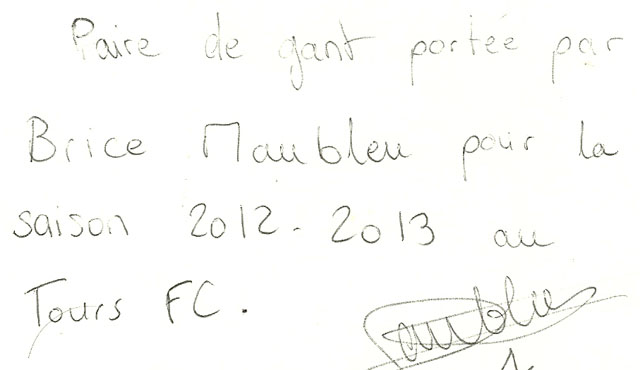 Paire de gant portée par
Brice Maubleu pour la
saison 2012-2013 au
Tours FC.
Maubleu